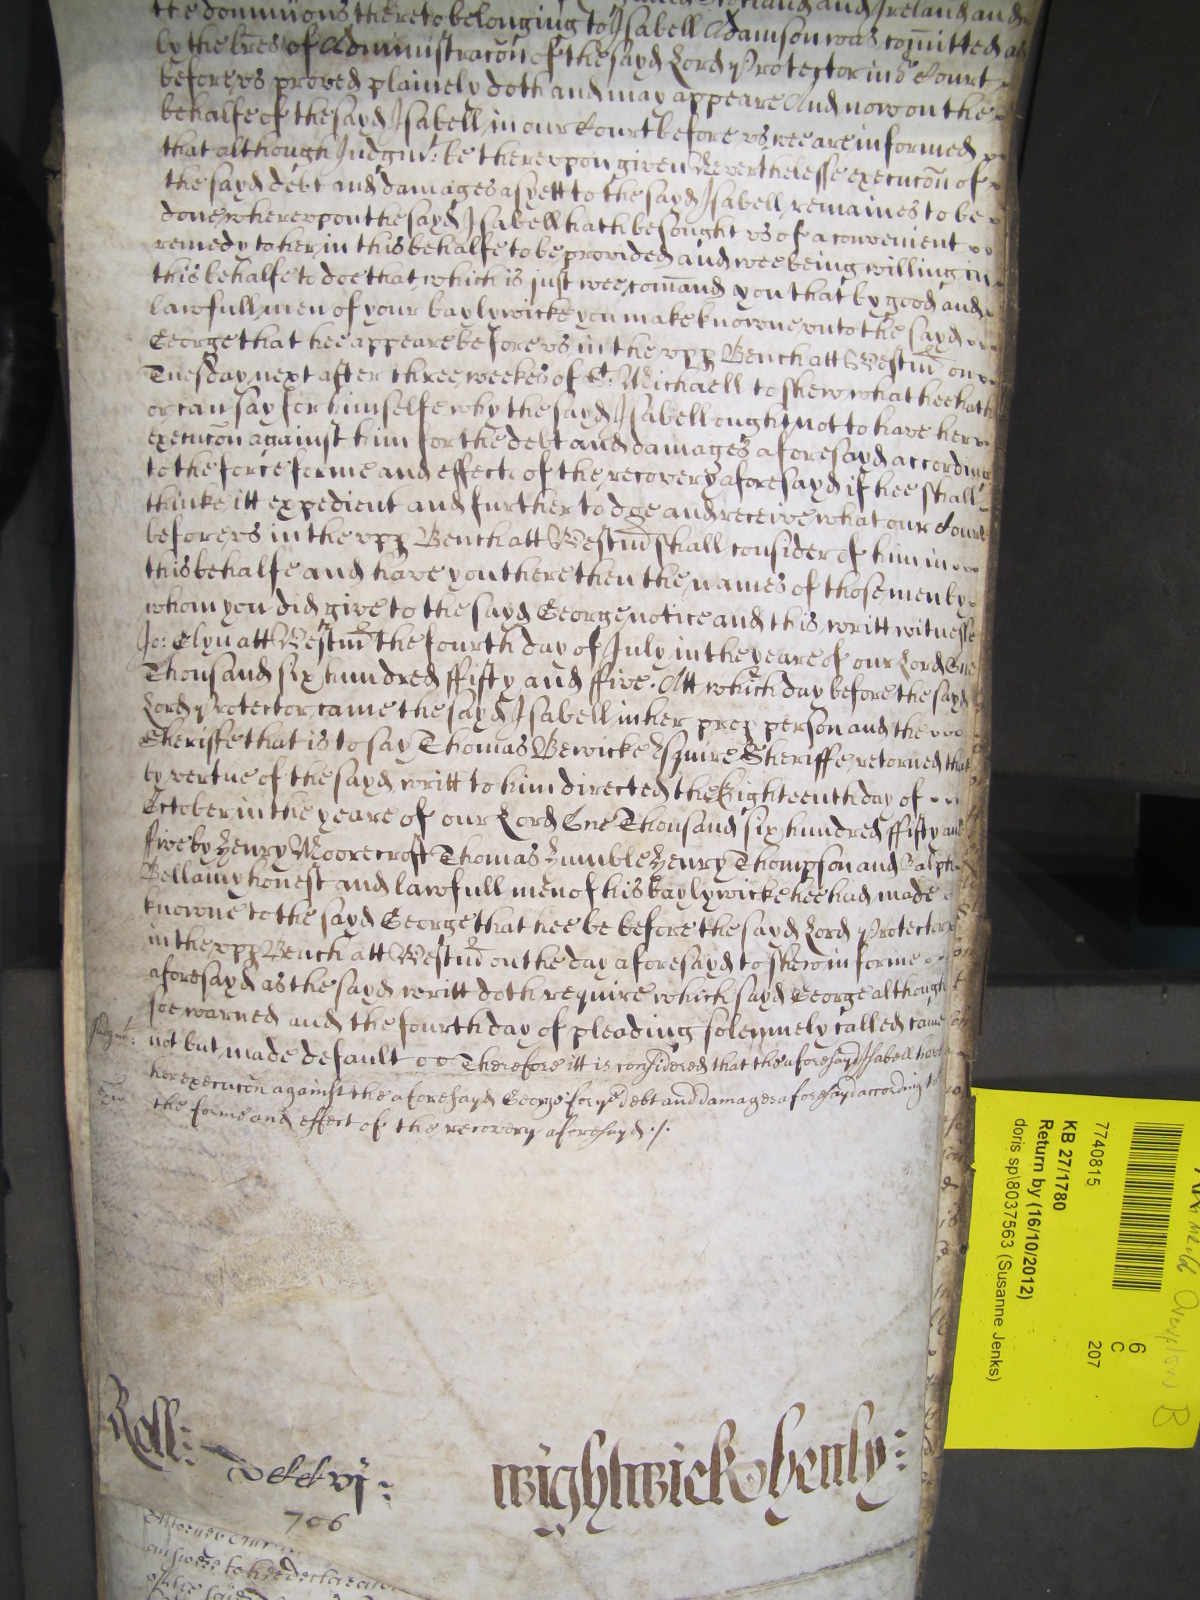 the dominions thereto belonging to Isabell Adamson was comitted as
by the lres of Administracon of the sayd Lord Protector in ye Court
before vs proved plainely doth and may appeare And now on the
behalfe of the sayd Isabell in our Court before vs wee are informed
that although Judgmt: be therevpon given Neverthelesse execucon of
the sayd debt and damages as yett to the sayd Isabell remaines to be
done wherevpon the sayd Isabell hath besought vs of a convenient
remedy to her in this behalfe to be provided and wee being willing in
this behalfe to doe that which is just wee comand you that by good and
lawfull men of your baylywicke you make knowne vnto the sayd
George that hee appeare before vs in the vpp Bench att Westm on
Tuesday next after three weekes of St. Michaell to shew what hee hath
or can say for himselfe why the sayd Isabell ought not to have her
execucon against him for the debt and damages aforesayd according
to the force forme and effect of the recovery aforesayd if hee shall
thinke itt expedient and further to doe and receive what our Court
before vs in the vpp Bench att Westm shall consider of him in
this behalfe and have you there then the names of those men by
whom you did give to the sayd George notice and this writt witnesse
Jo: Glyn att Westm the fourth day of July in the yeare of our Lord One
Thousand six hundred ffifty and ffive. Att which day before the sayd
Lord Protector came the sayd Isabell in her prop person and the
Sheriffe that is to say Thomas Bewicke Esquire Sheriffe retorned that
by vertue of the sayd writt to him directed the Eighteenth day of
October in the yeare of our Lord One Thousand six hundred ffifty and
ffive by Henry Moorecroft Thomas Humble Henry Thompson and Ralph
Bellamy honest and lawfull men of his baylywicke hee had made
knowne to the sayd George that hee be before the sayd Lord Protector
in the vpp Bench att Westm on the day aforesayd to shew in forme
aforesayd as the sayd writt doth require which sayd George although
soe warned and the fourth day of pleading solemnely called came
Judgmt:
not but made default Therefore itt is considered that the aforesayd Isabell have
her execucon against the aforesayd George for ye debt and damages aforesayd according to
Exec
the forme and effect of the recovery aforesayd ./.
Roll:
wightwick & henly:
706
answer to the declaracon
7740815
KB 27/1780
Return by (16/10/2012)
doris sp\8037563 (Susanne Jenks)
6
C
207
B